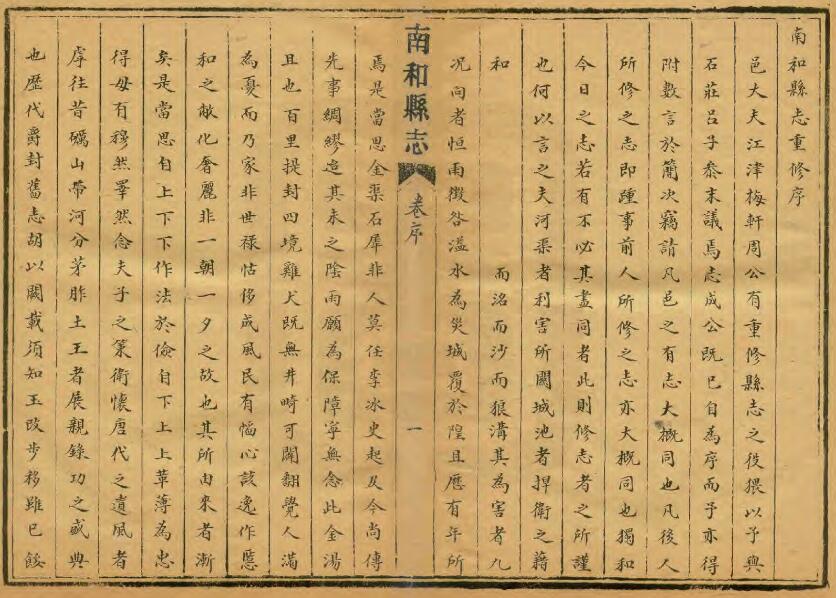 南和縣志重修序
邑大夫江津梅軒周公有重修縣志之役猥以予與
石莊呂子叅末議焉志成公既已自為序而予亦得
附數言於簡次竊請凡邑之有志大概同也凡後人
所修之志即踵事前人所修之志亦大概同也獨和
今日之志若有不必其盡同者此則修志者之所謹
也何以言之夫河渠者利害所關城池者捍衛之藉
和　而洺而沙而狼溝其為害者九
況向者恒雨徵咎溢水為災城覆於隍且歷有年所
南和縣志 卷序 一
焉是當思金渠石犀非人莫任李冰史起及今尚傳
先事綢繆迨其未之陰雨願為保障寧無念此金湯
且也百里提封四境雞犬既無井畸可闢翻覺人滿
為憂而乃家非世祿怙侈成風民有惼心該逸作慝
和之敝化奢麗非一朝一夕之故也其所由來者漸
矣是當思自上下下作法於儉自下上上革薄為忠
得毋有穆然睪然念夫子之策衛懷唐代之遺風者
虖往昔礪山帶河分茅胙土王者展親錄功之盛典
也歷代爵封舊志胡以闕載須知玉改步移雖已餒